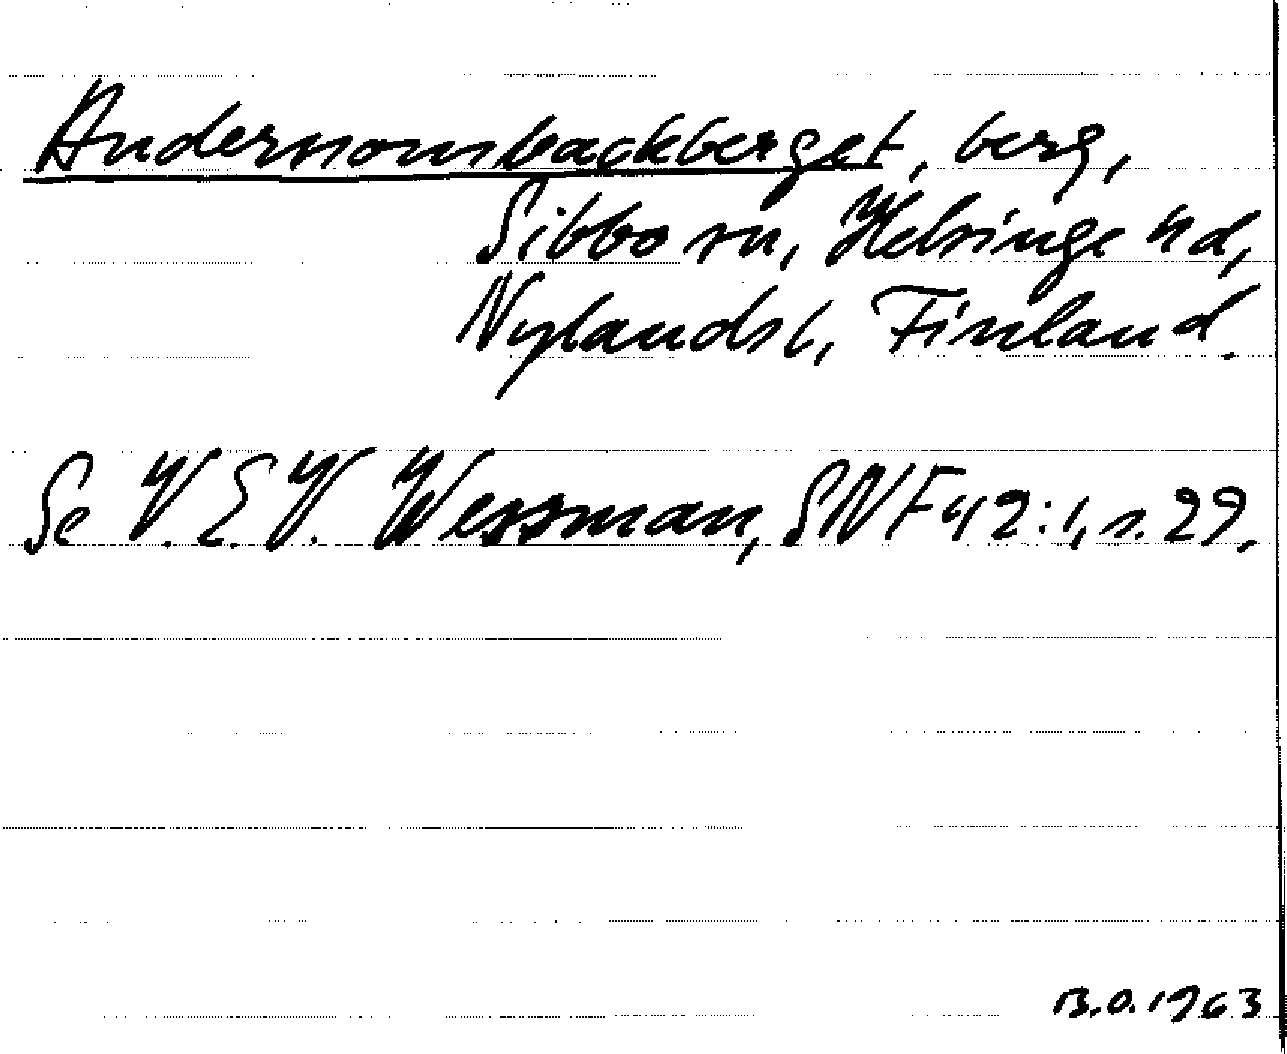 Andersnomsbackberget, berg,
Sibbo sn, Helsinge hd,
Nylands l, Finland.
Se V. E. V. Wessman, SNF 42:1, s. 29.
B.O. 1963